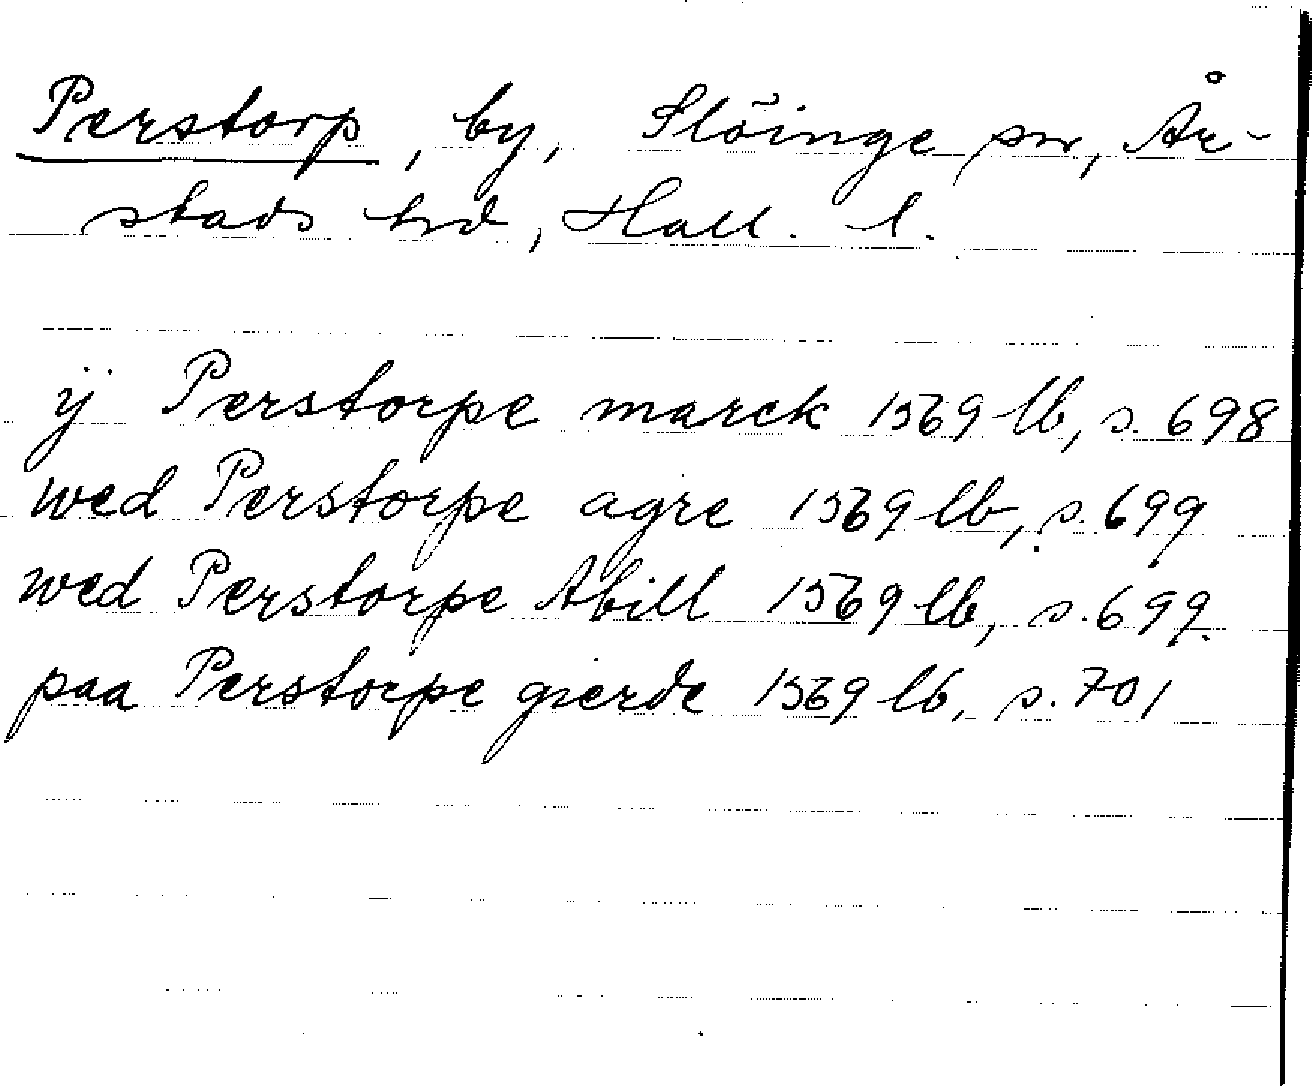 Perstorp, by, Slöinge sn, År-
stads hd, Hall. l.
ÿ Perstorpe marck 1569 lb, s. 698
wed Perstorpe agre 1569 lb, s. 699
wed Perstorpe Abill 1569 lb, s. 699.
paa Perstorpe gierde 1569 lb, s. 701